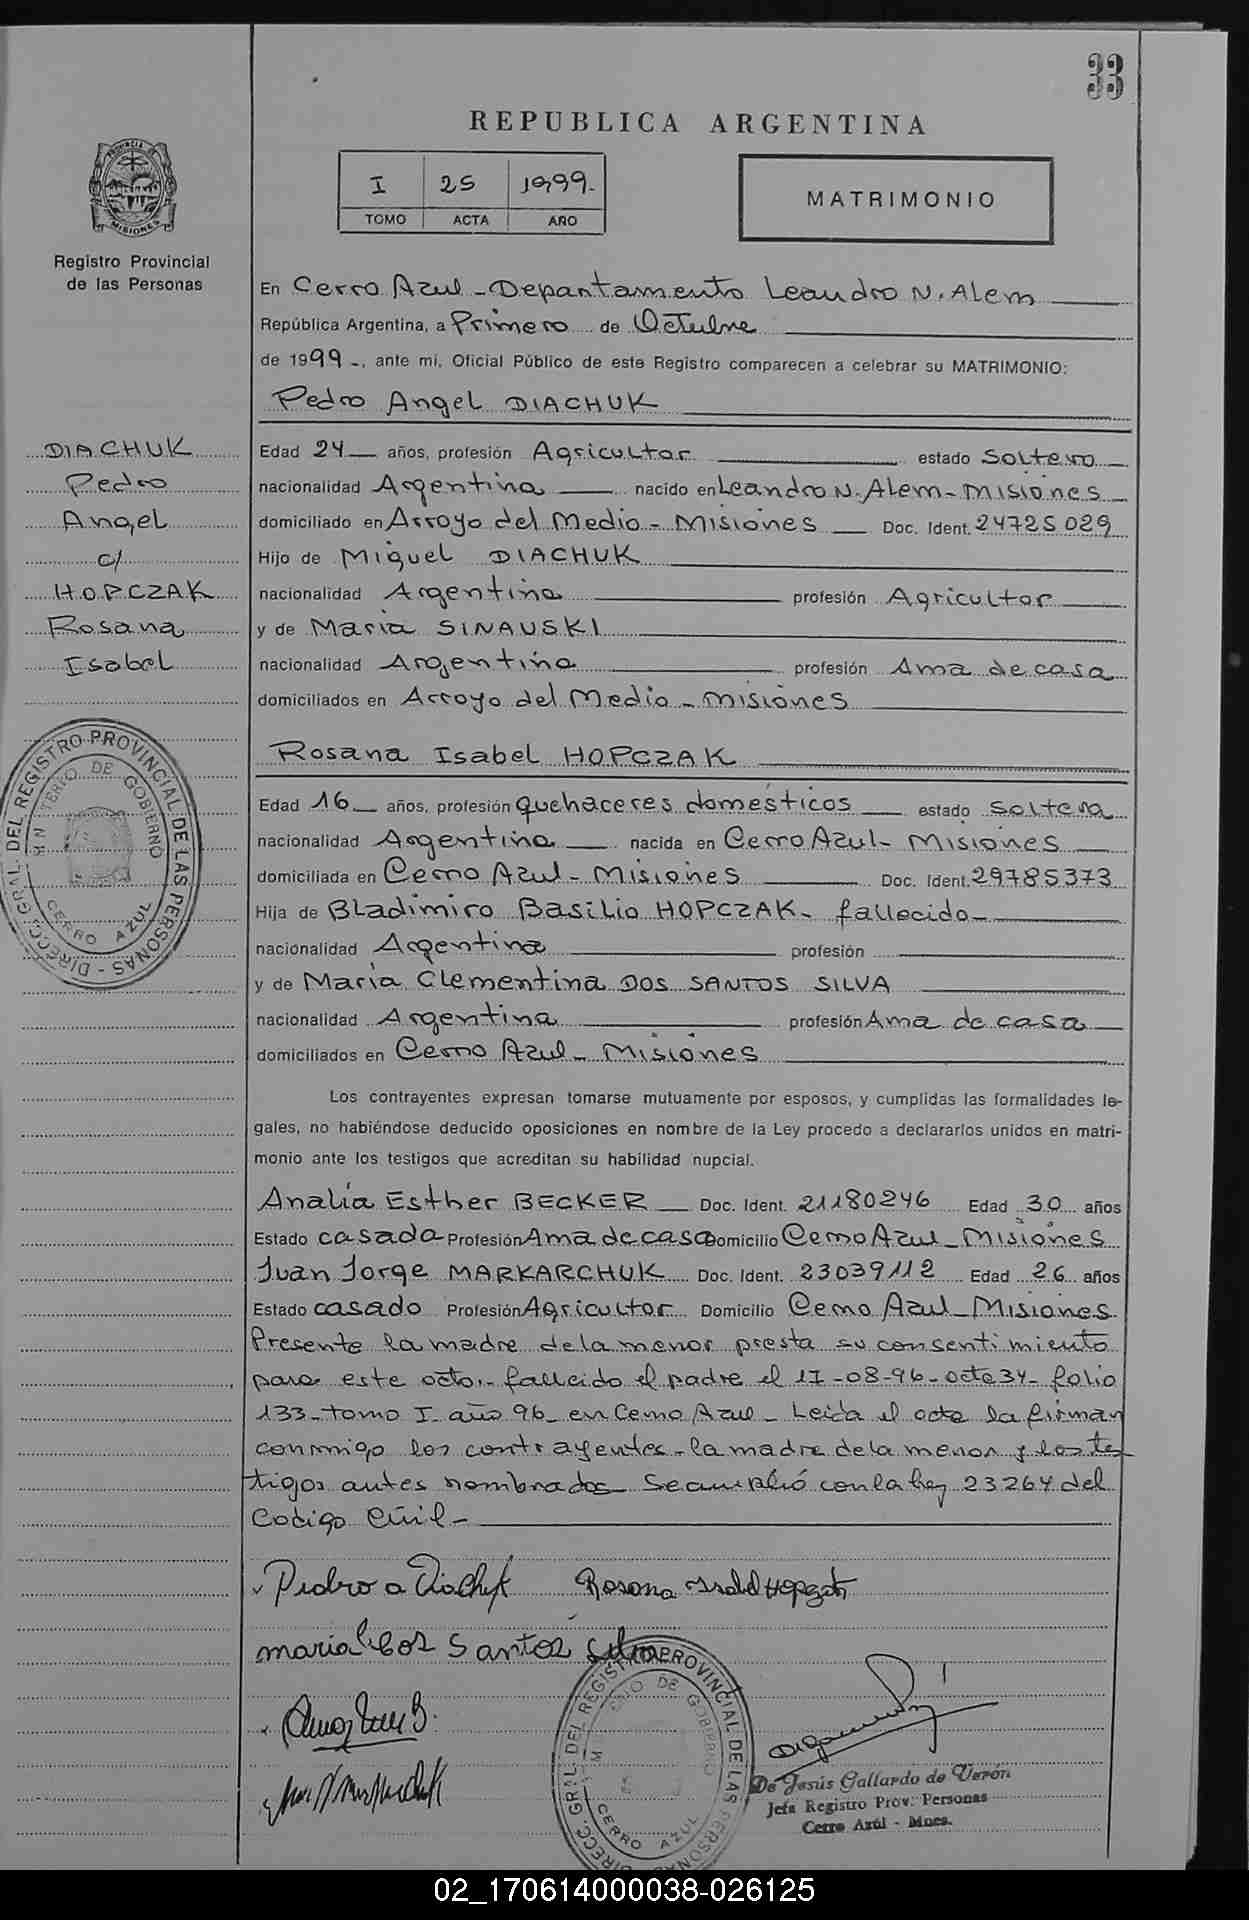 33
REPUBLICA ARGENTINA
I 25 1999.-
TOMO ACTA AÑO
MATRIMONIO
PROVINCIA DE MISIONES
Registro Provincial
de las Personas
En Cerro Azul - Departamento Leandro N. Alem
República Argentina, a Primero de Octubre
de 1999 -, ante mi, Oficial Público de este Registro comparecen a celebrar su MATRIMONIO:
Pedro Angel DIACHUK
DIACHUK
Pedro
Angel
c/
HOPCZAK
Rosana
Isabel
Edad 24 años, profesión Agricultor estado soltero
nacionalidad Argentina nacido en Leandro N. Alem - Misiones
domiciliado en Arroyo del Medio - Misiones Doc. Ident. 24725029
Hijo de Miguel DIACHUK
nacionalidad Argentina profesión Agricultor
y de María SINAUSKI
nacionalidad Argentina profesión Ama de casa
domiciliados en Arroyo del Medio - Misiones
Rosana Isabel HOPCZAK
Edad 16 años, profesión quehaceres domésticos estado soltera
nacionalidad Argentina nacida en Cerro Azul - Misiones
domiciliada en Cerro Azul - Misiones Doc. Ident. 29785373
Hija de Bladimiro Basilio HOPCZAK - fallecido -
nacionalidad Argentina profesión
y de María Clementina DOS SANTOS SILVA
nacionalidad Argentina profesión Ama de casa
domiciliados en Cerro Azul - Misiones
DIRECC. GRAL. DEL REGISTRO PROVINCIAL DE LAS PERSONAS -
MINISTERIO DE GOBIERNO
CERRO AZUL
Los contrayentes expresan tomarse mutuamente por esposos, y cumplidas las formalidades le-
gales, no habiéndose deducido oposiciones en nombre de la Ley procedo a declararlos unidos en matri-
monio ante los testigos que acreditan su habilidad nupcial.
Analía Esther BECKER Doc. Ident. 21180246 Edad 30 años
Estado casada Profesión Ama de casa Domicilio Cerro Azul - Misiones
Juan Jorge MARKARCHUK Doc. Ident. 23039112 Edad 26 años
Estado casado Profesión Agricultor Domicilio Cerro Azul - Misiones
Presente la madre de la menor presta su consentimiento
para este acto.- fallecido el padre el 17-08-96 - acta 34 - folio
133 - tomo I año 96 - en Cerro Azul - Leída el acta la firman
conmigo los contrayentes - la madre de la menor y los tes-
tigos antes nombrados Se cumplió con la ley 23264 del
Codigo Civil -
Pedro a Diachuk Rosana Isabel Hopczak
maria C dos Santos Silva
DIRECC. GRAL. DEL REGISTRO PROVINCIAL DE LAS PERSONAS
MINISTERIO DE GOBIERNO
CERRO AZUL
De Jesús Gallardo de Verón
Jefa Registro Prov. Personas
Cerro Azúl - Mnes.
02_170614000038-026125